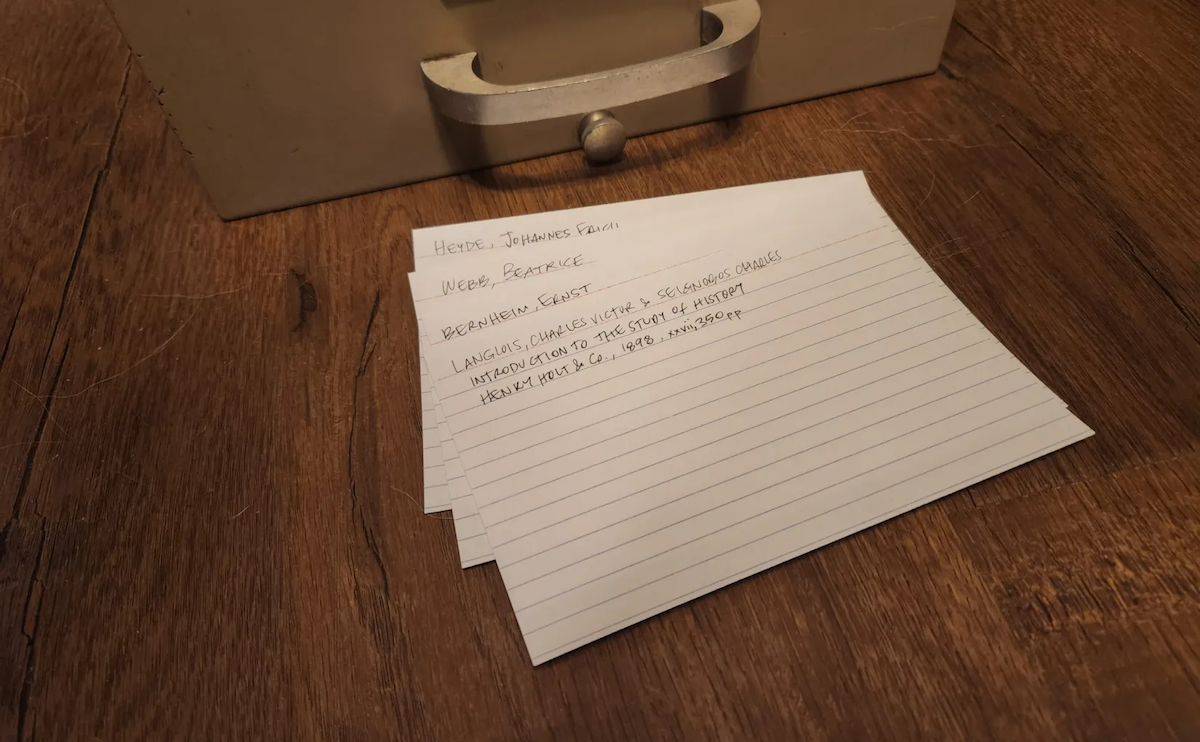 HEYDE, JOHANNES ERICH
WEBB, BEATRICE
BERNHEIM, ERNST
LANGLOIS, CHARLES VICTOR & SEIGNOBOS CHARLES
INTRODUCTION TO THE STUDY OF HISTORY
HENRY HOLT & CO., 1898, xxvii, 350pp